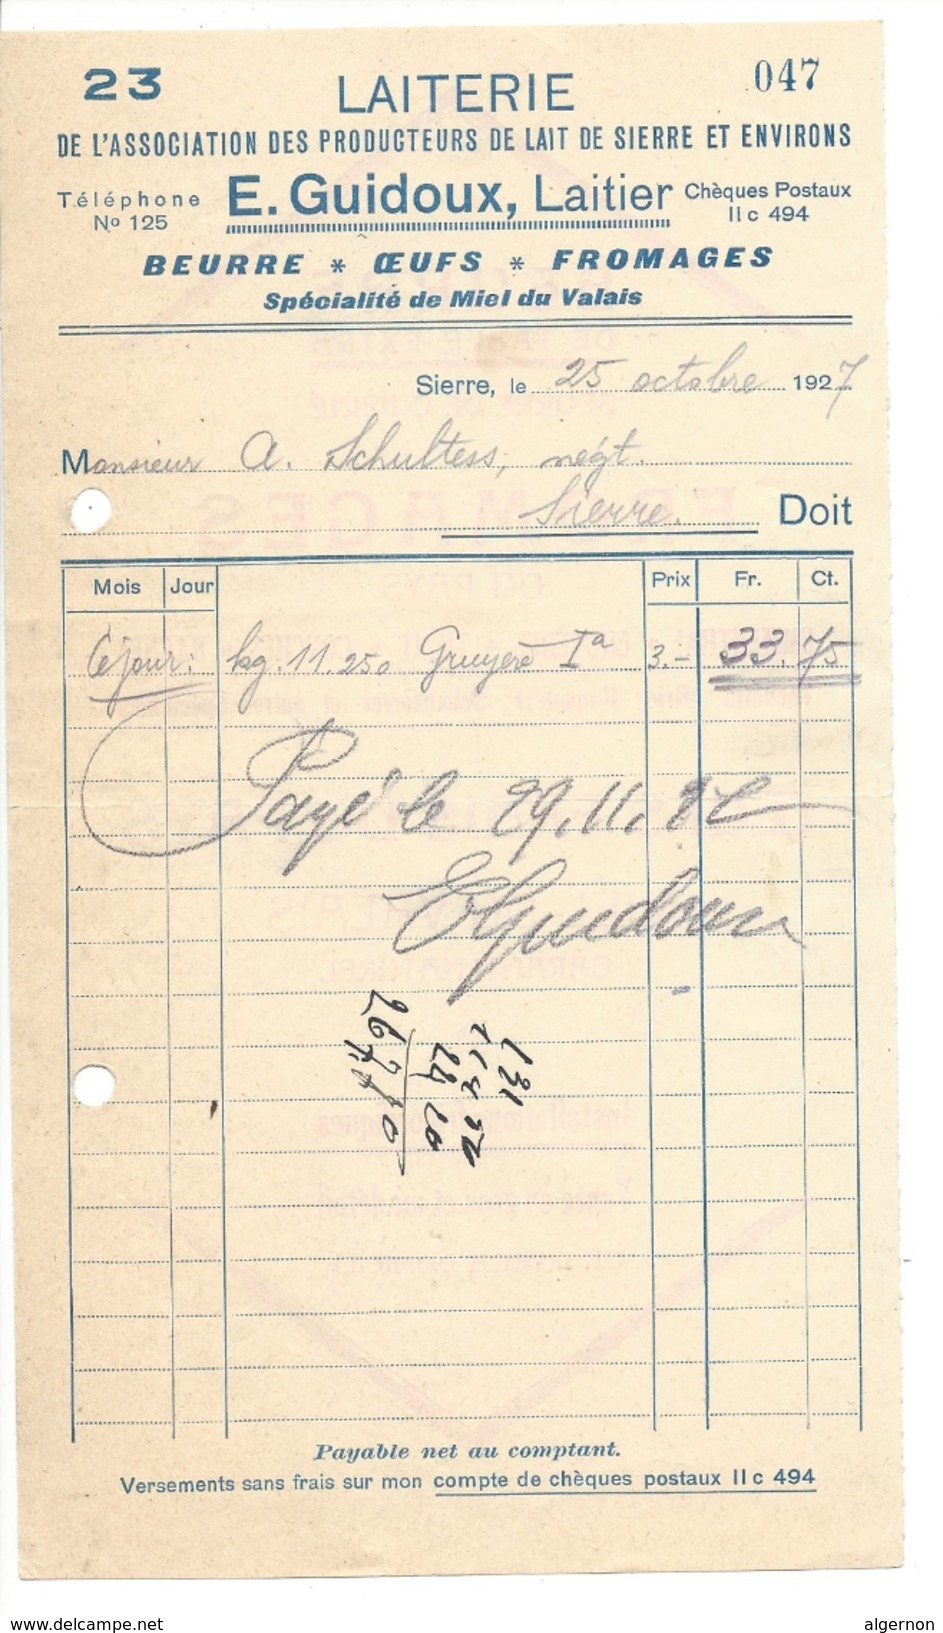 23 LAITERIE 047
DE L'ASSOCIATION DES PRODUCTEURS DE LAIT DE SIERRE ET ENVIRONS
Téléphone
No 125
E. Guidoux, Laitier
Chèques Postaux
II c 494
BEURRE * ŒUFS * FROMAGES
Spécialité de Miel du Valais
Sierre, le 25 octobre 1927
Monsieur A. Schultess, négt.
Sierre. Doit
Mois Jour Prix Fr. Ct.
Ce jour: kg. 11.250 Gruyère Ia 3.- 33.75
Payé le 29.11.27
EGuidoux
Payable net au comptant.
Versements sans frais sur mon compte de chèques postaux II c 494
www.delcampe.net algernon